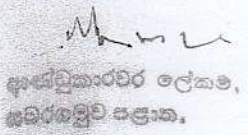 ආණ්ඩුකාරවර ලේකම්,
සබරගමුව පළාත.